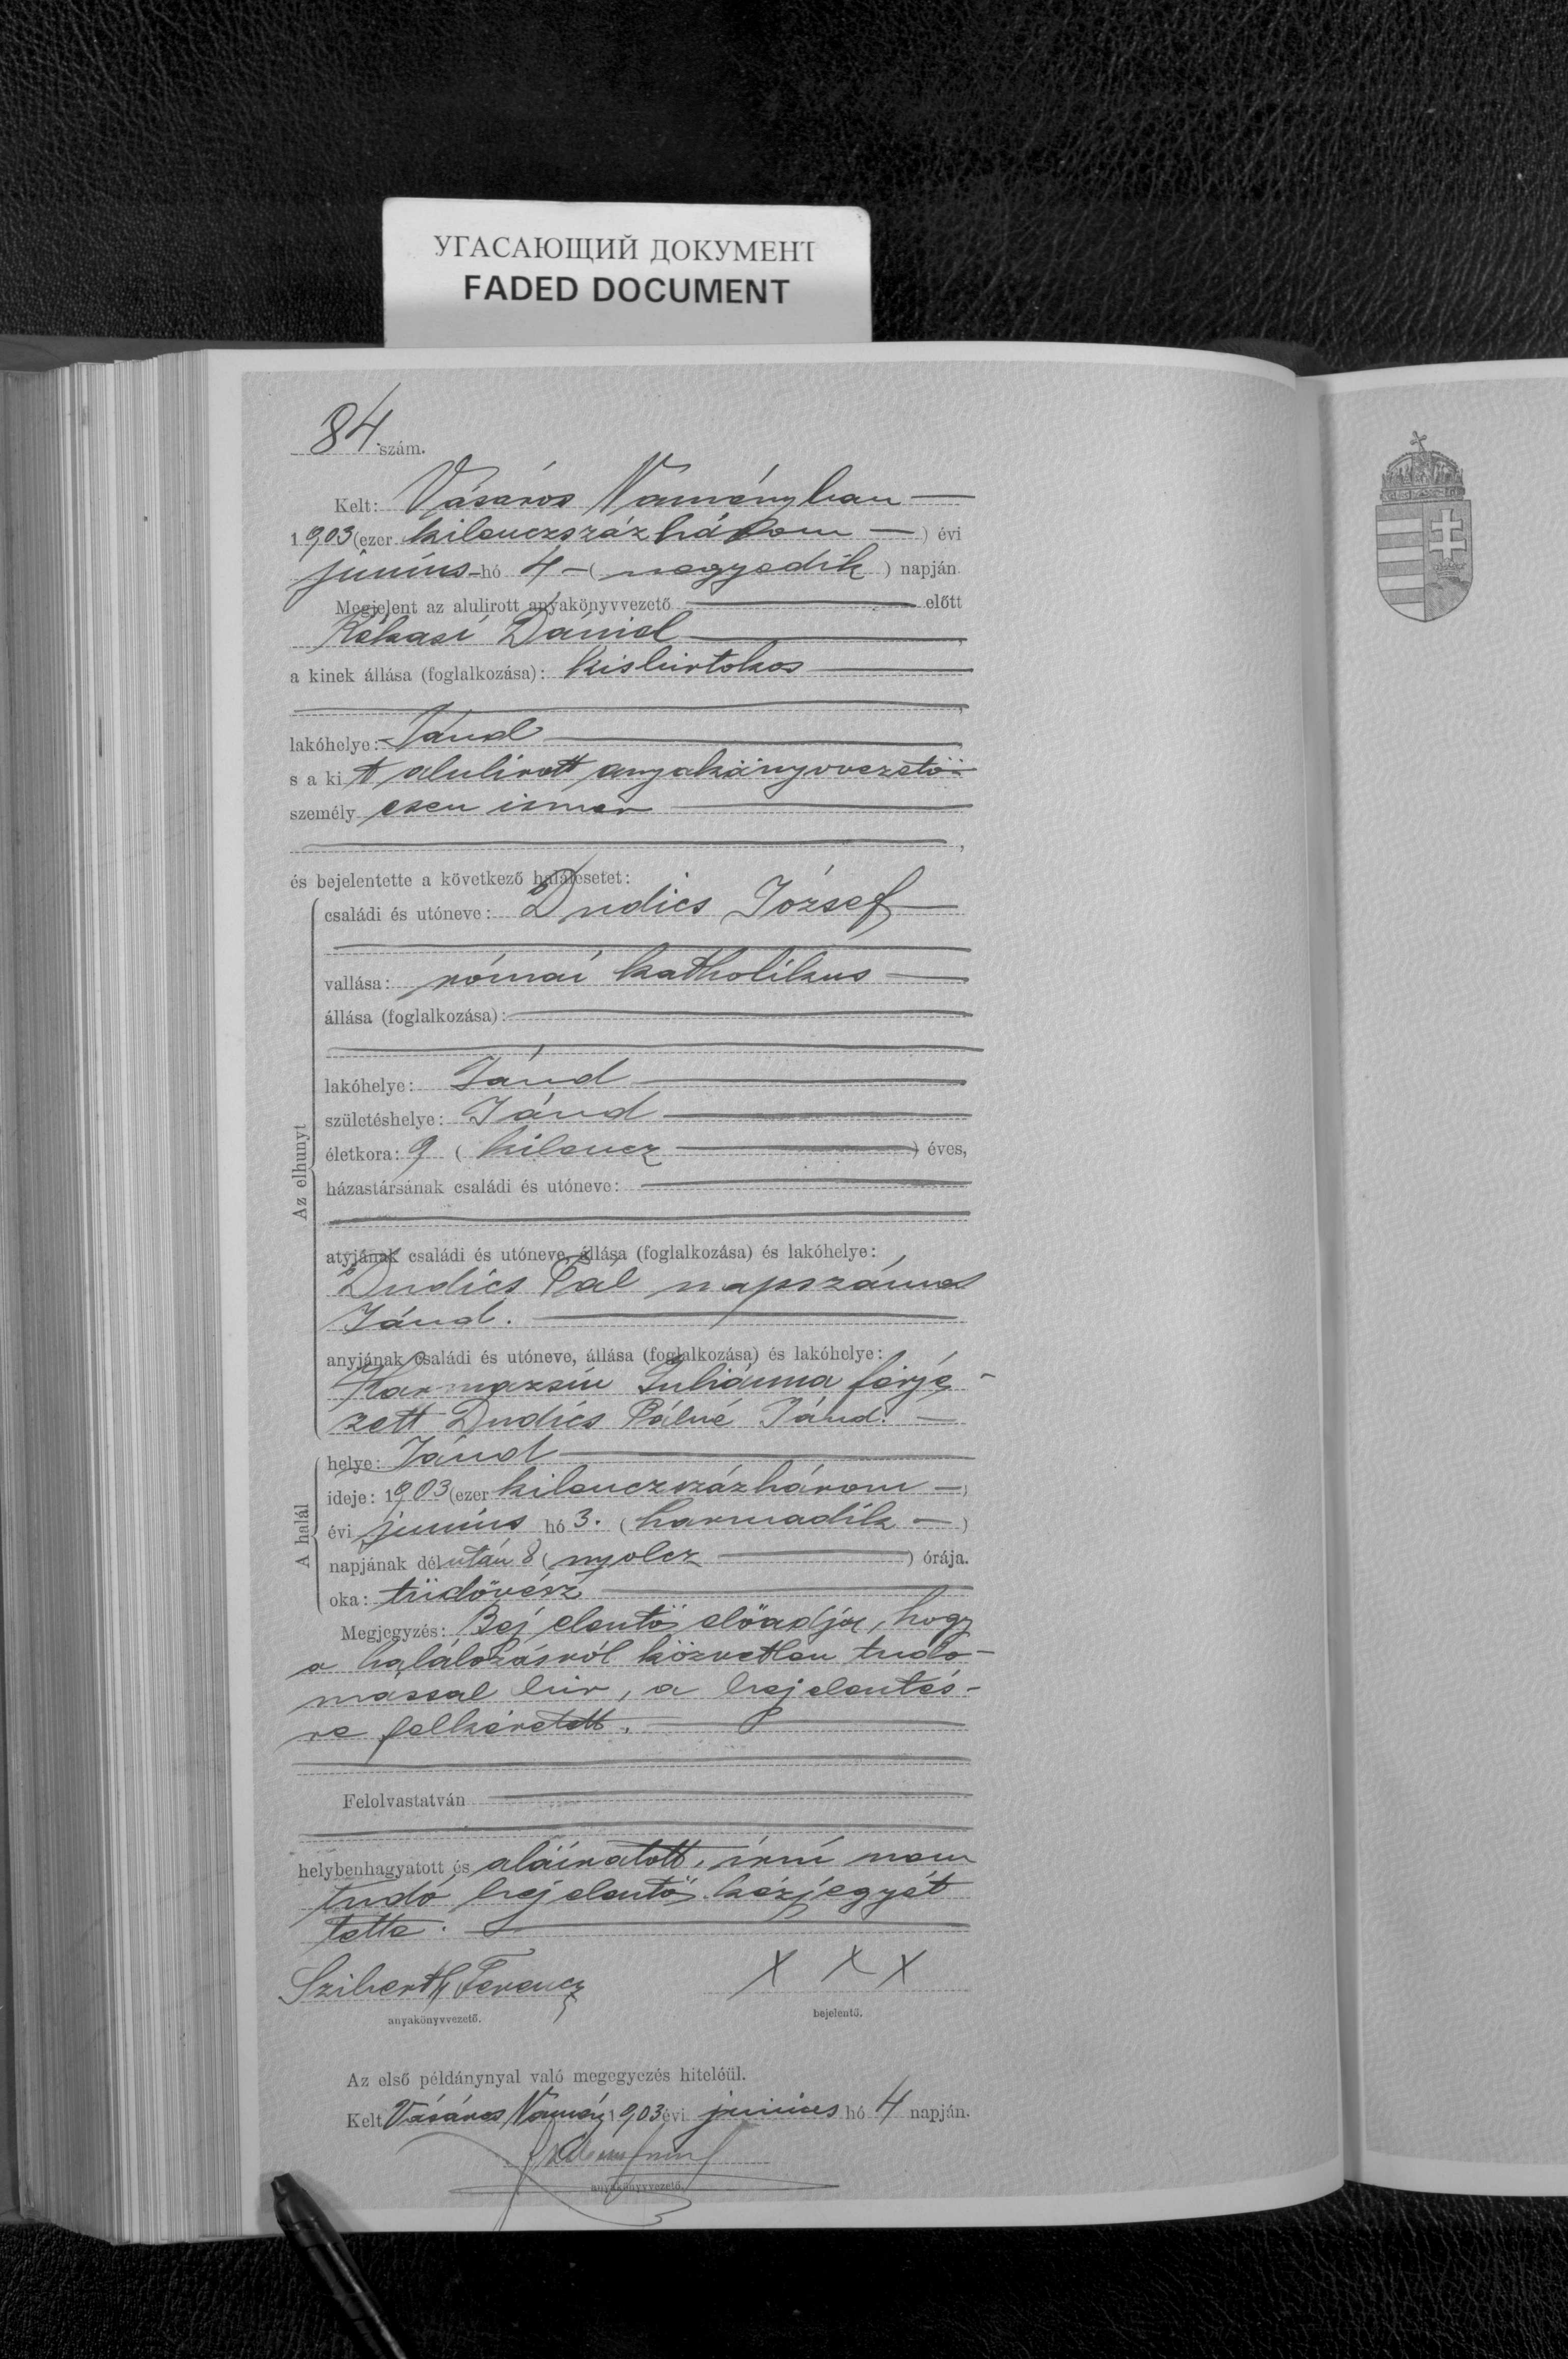 УГАСАЮЩИЙ ДОКУМЕНТ
FADED DOCUMENT
84. szám.
Kelt: Vásáros Naményban —
1903 (ezer kilenczszázhárom —) évi
június hó 4 — (negyedik) napján
Megjelent az alulirott anyakönyvvezető — előtt
Kékasi Dániel —,
a kinek állása (foglalkozása): kisbirtokos —
lakóhelye: Jánd —,
s a kit alulirott anyakönyvvezető
személyesen ismer —
,
és bejelentette a következő halálesetet:
Az elhunyt
családi és utóneve: Dudics József —
vallása: római katholikus —
állása (foglalkozása): —
lakóhelye: Jánd —
születéshelye: Jánd —
életkora: 9 (kilencz —) éves,
házastársának családi és utóneve: —
atyjának családi és utóneve, állása (foglalkozása) és lakóhelye:
Dudics Pál napszámos
Jánd. —
anyjának családi és utóneve, állása (foglalkozása) és lakóhelye:
Karmazsin Juliánna férje-
zett Dudics Pálné Jánd. —
A halál
helye: Jánd —
ideje: 1903 (ezer kilenczszázhárom —)
évi június hó 3. (harmadik —)
napjának délután 8 (nyolcz —) órája.
oka: tüdővész —
Megjegyzés: Bejelentő előadja, hogy
a halálozásról közvetlen tudo-
mással bir, a bejelentés-
re felkéretett. —
Felolvastatván —
helybenhagyatott és aláiratott, írni nem
tudó bejelentő kézjegyét
tette. —
Sziberth Ferencz X X X
anyakönyvvezető. bejelentő.
Az első példánynyal való megegyezés hiteléül.
Kelt Vásáros Namény 1903 évi június hó 4 napján.
anyakönyvvezető.